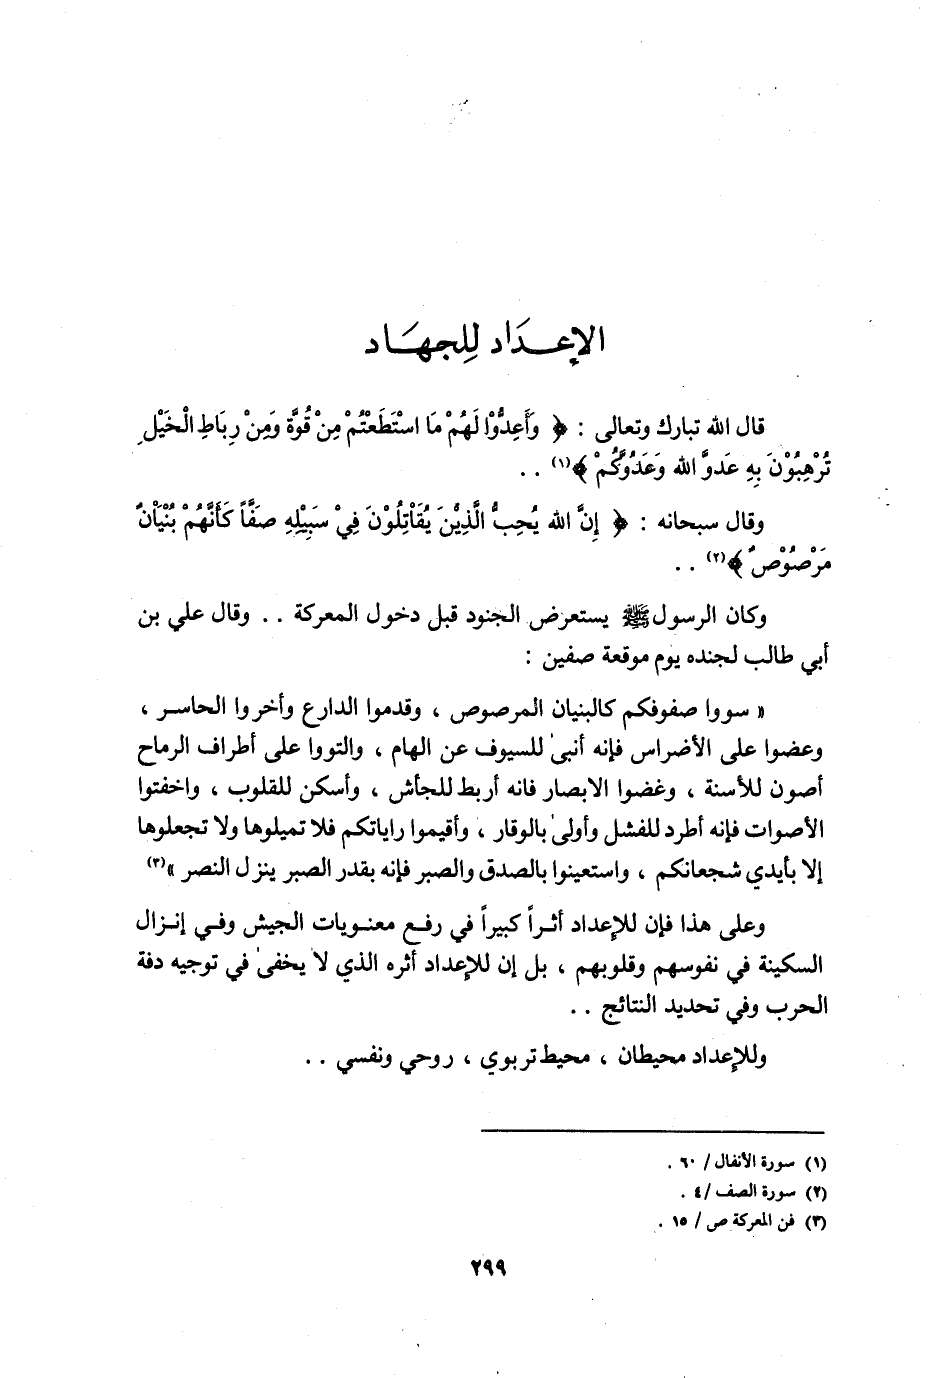 الإعـداد للجهـاد
قال الله تبارك وتعالى : ﴿ وَأَعِدُّوْا لَهُمْ مَا اسْتَطَعْتُمْ مِنْ قُوَّة وَمِنْ رِبَاطِ الْخَيْلِ
تُرْهِبُوْنَ بِهِ عَدوَّ الله وَعَدُوَّكُمْ ﴾(١) . .
وقال سبحانه : ﴿ إِنَّ الله يُحِبُّ الَّذِيْنَ يُقَاْتِلُوْنَ فِيْ سَبِيْلِهِ صَفَّاً كَأَنَّهُمْ بُنْيَاْنٌ
مَرْصُوْصٌ ﴾(٢) . .
وكان الرسول ﷺ يستعرض الجنود قبل دخول المعركة . . وقال علي بن
أبي طالب لجنده يوم موقعة صفين :
« سووا صفوفكم كالبنيان المرصوص ، وقدموا الدارع وأخروا الحاسر ،
وعضوا على الأضراس فإنه أنبىٰ للسيوف عن الهام ، والتووا على أطراف الرماح
أصون للأسنة ، وغضوا الابصار فانه أربط للجأش ، وأسكن للقلوب ، واخفتوا
الأصوات فإنه أطرد للفشل وأولىٰ بالوقار ، وأقيموا راياتكم فلا تميلوها ولا تجعلوها
إلا بأيدي شجعانكم ، واستعينوا بالصدق والصبر فإنه بقدر الصبر ينزل النصر »(٣)
وعلى هذا فإن للإعداد أثراً كبيراً في رفع معنويات الجيش وفي إنزال
السكينة في نفوسهم وقلوبهم ، بل إن للإعداد أثره الذي لا يخفىٰ في توجيه دفة
الحرب وفي تحديد النتائج . .
وللإعداد محيطان ، محيط تربوي ، روحي ونفسي . .
(١) سورة الأنفال / ٦٠ .
(٢) سورة الصف /٤ .
(٣) فن المعركة ص / ١٥ .
٢٩٩